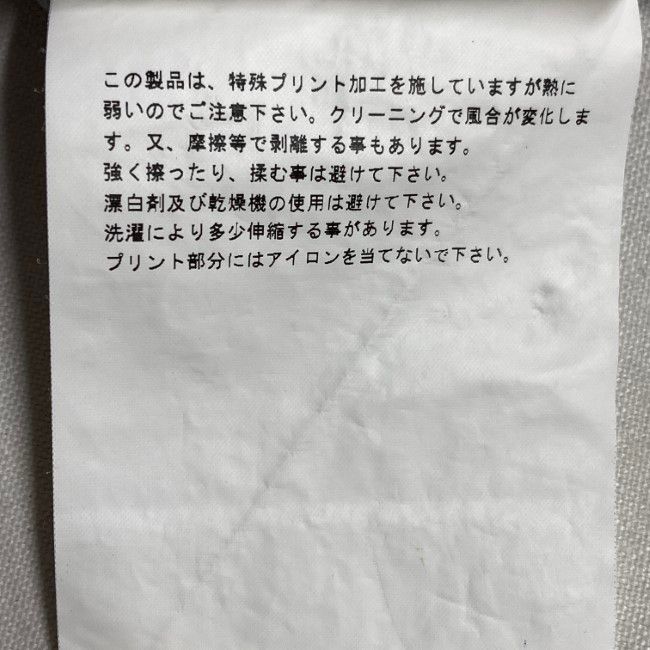 この製品は、特殊プリント加工を施していますが熱に
弱いのでご注意下さい。クリーニングで風合が変化しま
す。又、摩擦等で剥離する事もあります。
強く擦ったり、揉む事は避けて下さい。
漂白剤及び乾燥機の使用は避けて下さい。
洗濯により多少伸縮する事があります。
プリント部分にはアイロンを当てないで下さい。